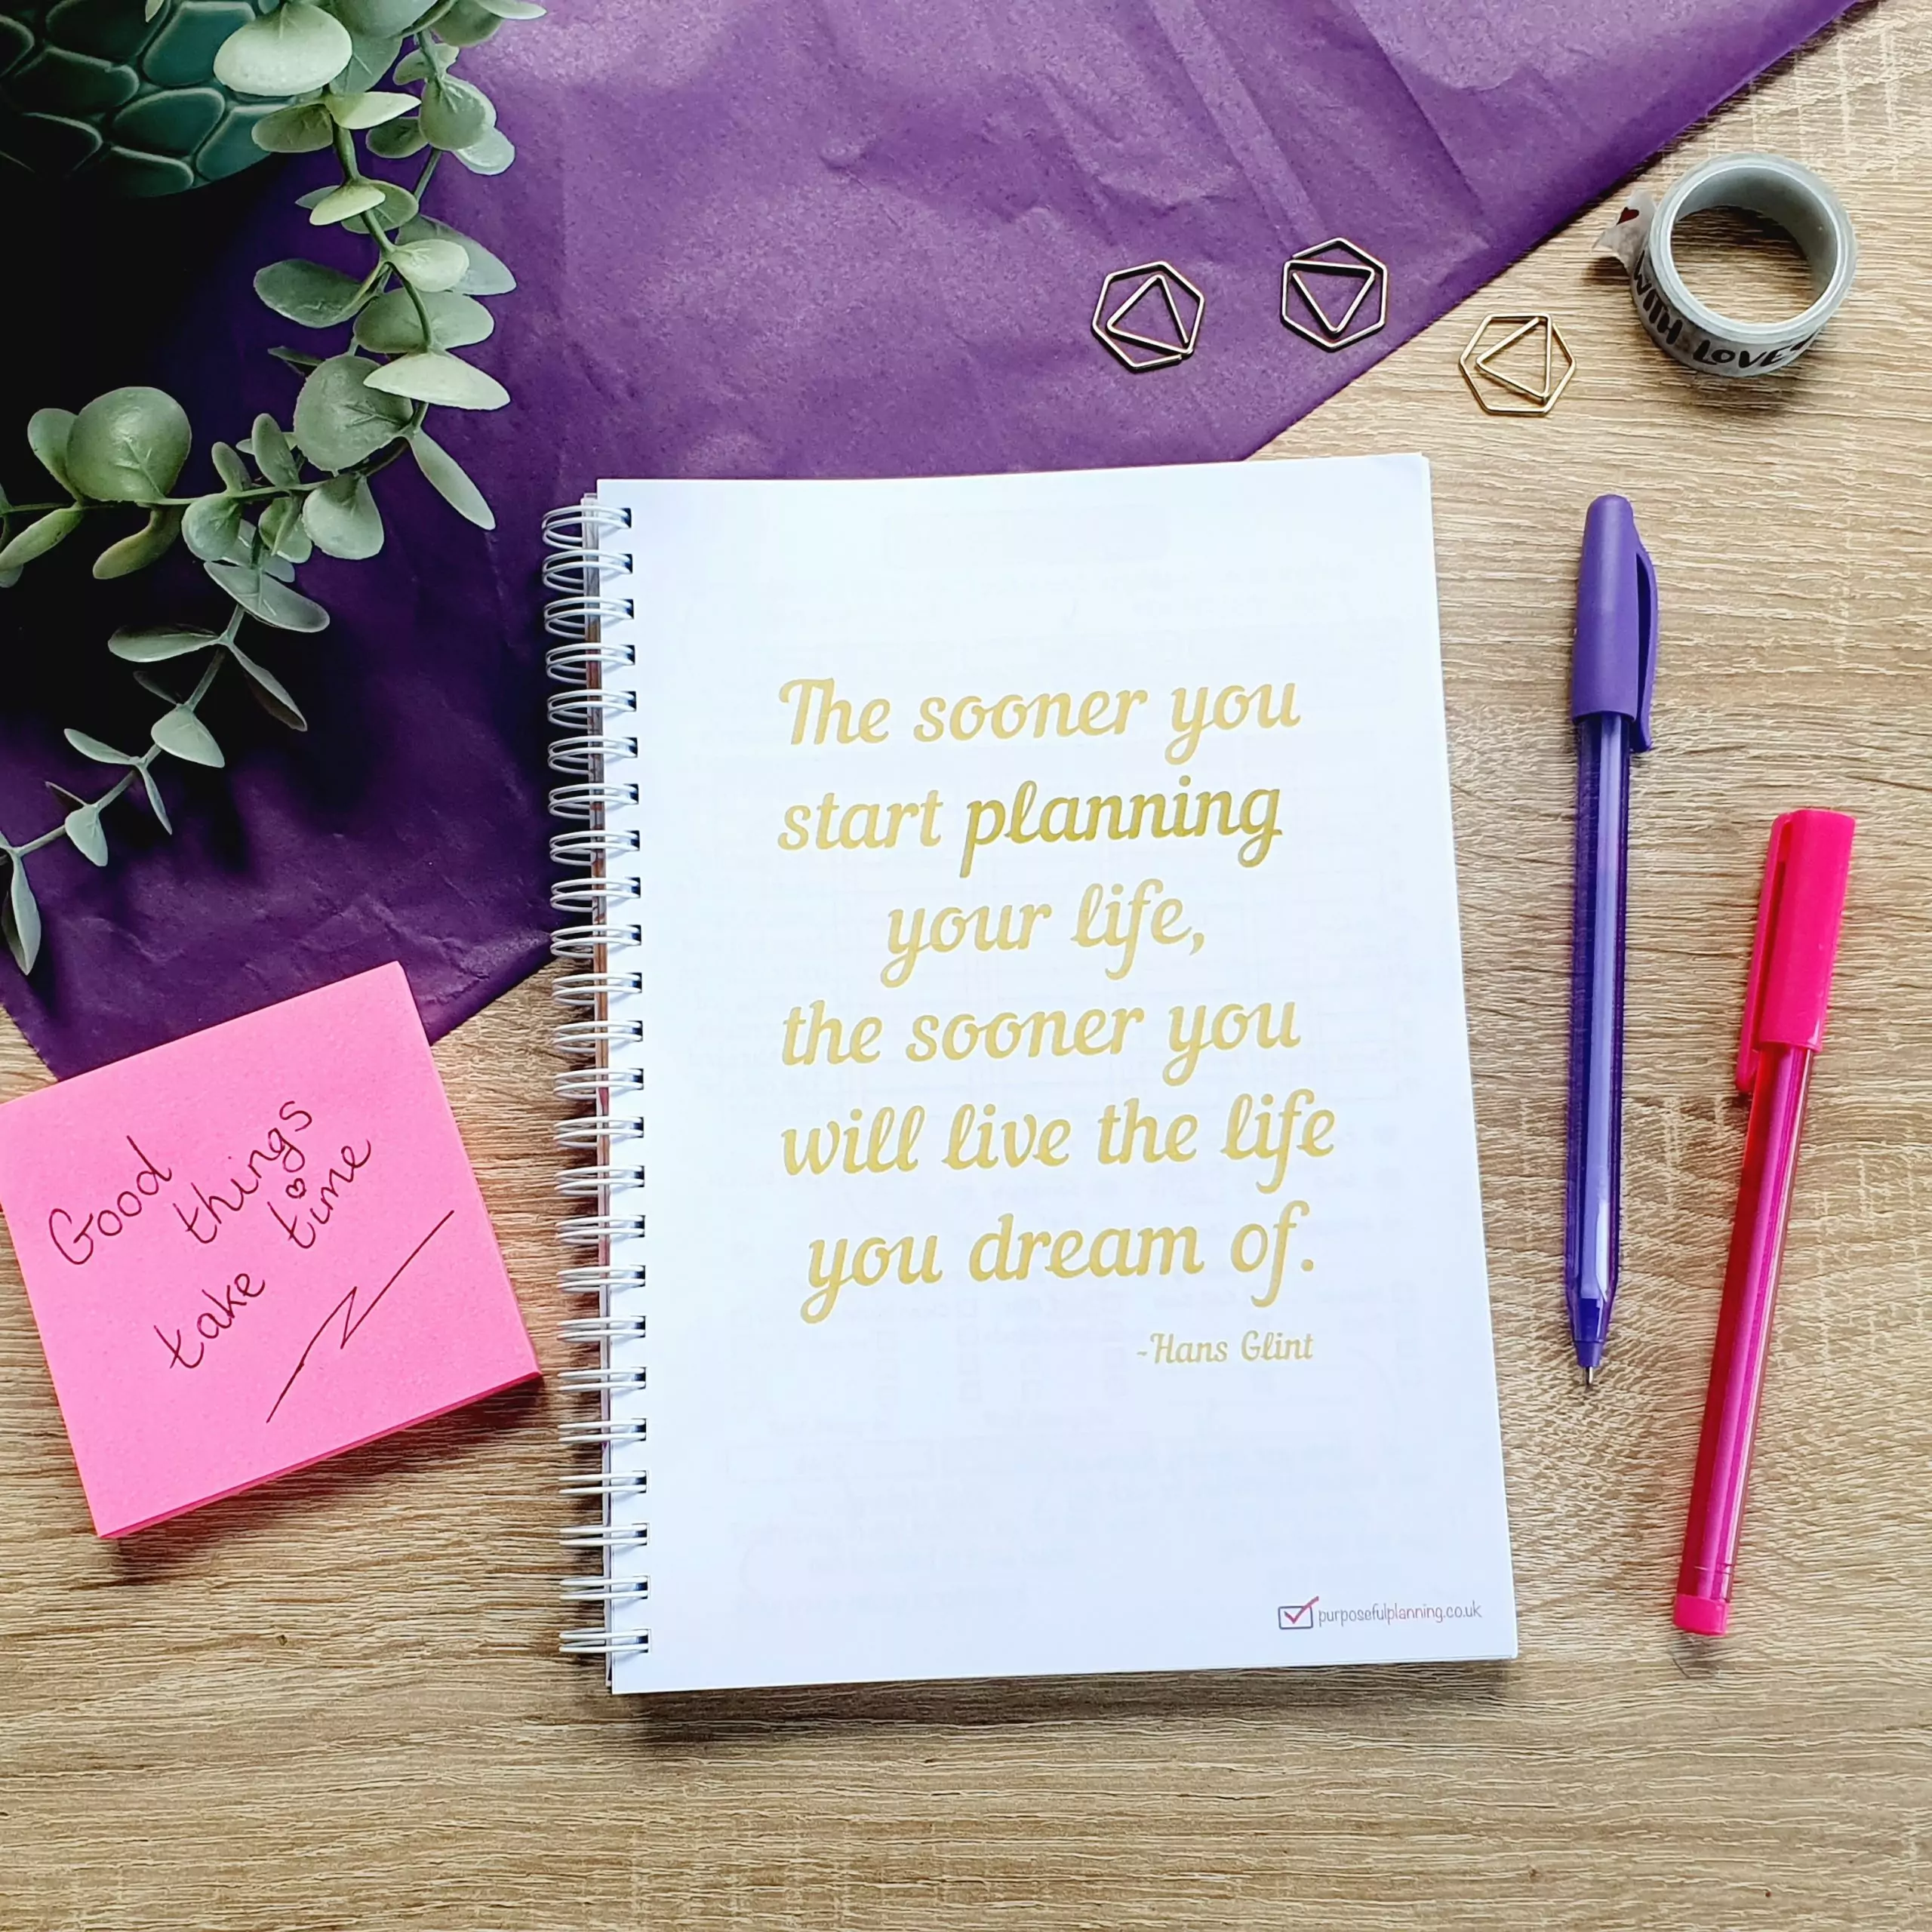 WITH LOVE
The sooner you
start planning
your life,
the sooner you
will live the life
you dream of.
-Hans Glint
Good
things
take time
purposefulplanning.co.uk